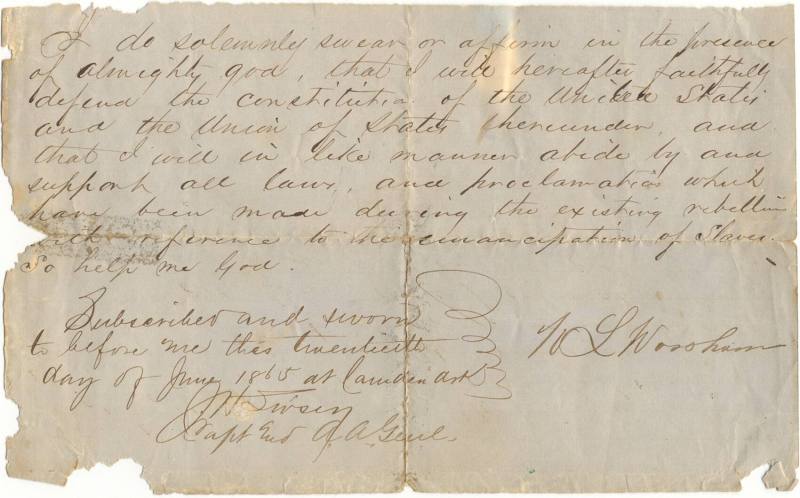 I do solemnly swear or affirm in the presence
of almighty god, that I will hereafter faithfully
defend the constitution of the United States
and the Union of States thereunder, and
that I will in like manner abide by and
support all laws, and proclamations which
have been made during the existing rebellion
with reference to the emancipation of Slaves.
So help me God.
Subscribed and sworn
to before me this twentieth
day of June 1865 at Camden Ark
Capt And A. A. Genl.
L Worsham